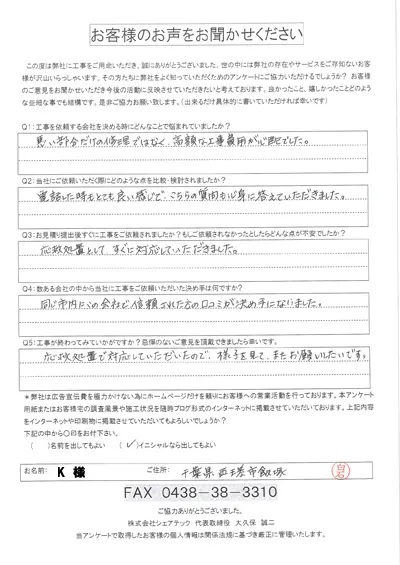 お客様のお声をお聞かせください
この度は弊社に工事をご用命いただき、誠にありがとうございました。世の中には弊社の存在やサービスをご存知ないお客
様が沢山いらっしゃいます。その方たちに弊社をよく知っていただくためのアンケートにご協力いただけるでしょうか? お客様
のご意見をお聞かせいただき今後の活動に反映させていただきたいと考えております。良かったこと、嬉しかったことどのよう
な些細な事でも結構です。是非ご協力お願い致します。（出来るだけ具体的に書いていただければ幸いです）
Q1：工事を依頼する会社を決める時にどんなことで悩まれていましたか?
悪い部分だけの修理ではなく、高額な工事費用が心配でした。
Q2：当社にご依頼いただく際にどのような点を比較・検討されましたか?
電話した時もとても良い感じで、こちらの質問も心身に答えていただきました。
Q3：お見積り提出後すぐに工事をご依頼されましたか?もしご依頼されなかったとしたらどんな点が不安でしたか?
応救処置として、すぐに対応していただきました。
Q4：数ある会社の中から当社に工事をご依頼いただいた決め手は何ですか?
同じ市内にこの会社で依頼された方の口コミが決め手になりました。
Q5：工事が終わってみていかがですか?忌憚のないご意見を頂戴できましたら幸いです。
応救処置で対応していただいたので、様子を見て、またお願いしたいです。
＊弊社は広告宣伝費を極力かけない為にホームページだけを頼りにお客様への営業活動を行っております。本アンケート
用紙またはお客様宅の調査風景や施工状況を随時ブログ形式のインターネットに掲載させていただいております。上記内容
をインターネットや印刷物に掲載させていただいてもよろしいでしょうか?
下記の中から〇印をお付下さい。
（ ）名前を出してもよい （✓）イニシャルなら出してもよい
お名前: K 様 ご住所: 千葉県 市 白石
FAX 0438-38-3310
ご協力ありがとうございました。
株式会社シェアテック 代表取締役 大久保 誠二
当アンケートで取得したお客様の個人情報は関係法規に基づき厳正に管理いたします。